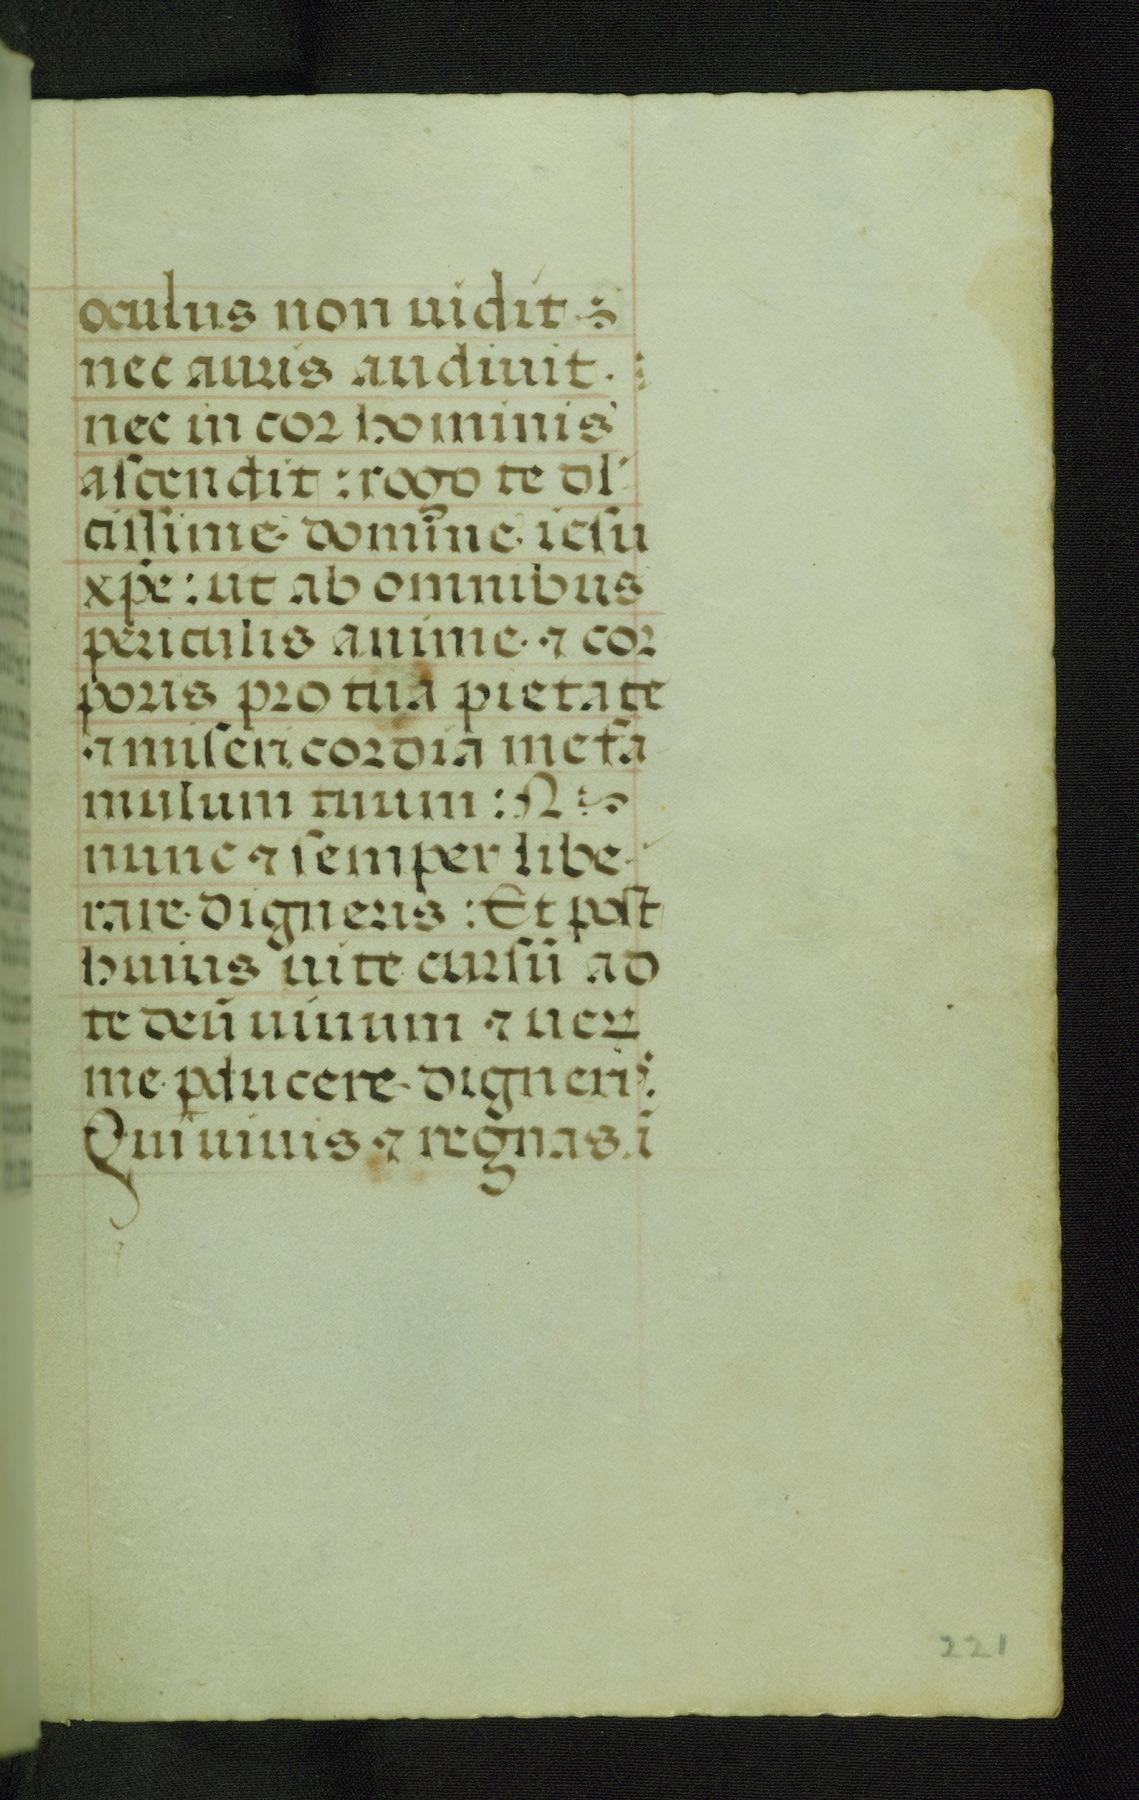 oculus non uidit
nec auris audiuit.
nec in cor hominis
ascendit : rogo te dl
cissime domine iesu
xp̄e : ut ab omnibus
periculis anime ⁊ cor
poris pro tua pietate
⁊ misericordia me fa
mulum tuum : N
nunc ⁊ semper libe
rare digneris : Et post
huius uite cursū ad
te deū uiuum ⁊ ueꝝ
me ꝑducere digneris.
Qui uiuis ⁊ regnas ī
221